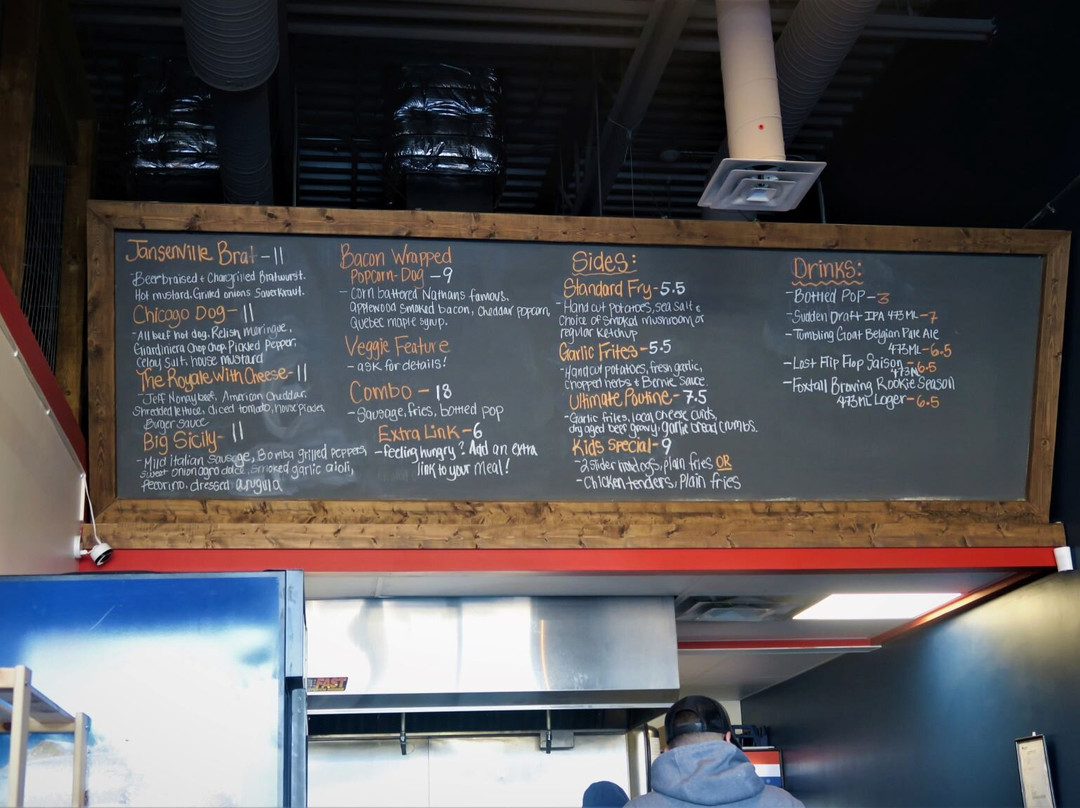 Jansenville Brat - 11
- Beer braised + Chargrilled Bratwurst.
Hot mustard. Grilled onions Sauerkraut.
Chicago Dog - 11
- All beef hot dog. Relish meringue,
Giardiniera Chop Chop Pickled Pepper,
Celery Salt, house mustard
The Royale With Cheese - 11
- Jeff Nonay beef, American Cheddar,
Shredded lettuce, diced tomato, house pickles,
Burger sauce
Big Sicily - 11
- Mild Italian Sausage, Bomba grilled peppers,
sweet onion agro dolce, smoked garlic aioli,
pecorino, dressed arugula
Bacon Wrapped
Popcorn-Dog - 9
- Corn battered Nathans famous.
applewood smoked bacon, cheddar popcorn,
Quebec maple syrup.
Veggie Feature
- ask for details!
Combo - 18
- Sausage, fries, bottled pop
Extra Link - 6
- Feeling hungry? Add an extra
link to your meal!
Sides:
Standard Fry - 5.5
- Hand cut potatoes, sea salt &
Choice of smoked mushroom or
regular ketchup
Garlic Frites - 5.5
- Handcut potatoes, fresh garlic,
chopped herbs & Bernie Sauce.
Ultimate Poutine - 7.5
- Garlic frites, local cheese curds,
dry aged beef gravy, garlic bread crumbs.
Kids Special - 9
- 2 slider hotdogs, plain fries OR
- Chicken tenders, Plain fries
Drinks:
- Bottled Pop - 3
- Sudden Draft IPA 473 ML - 7
- Tumbling Goat Belgian Pale Ale
473ML - 6.5
- Lost Flip Flop Saison - 6.5
473ML
- Foxtail Brewing Rookie Season
473ML Lager - 6.5
FAST